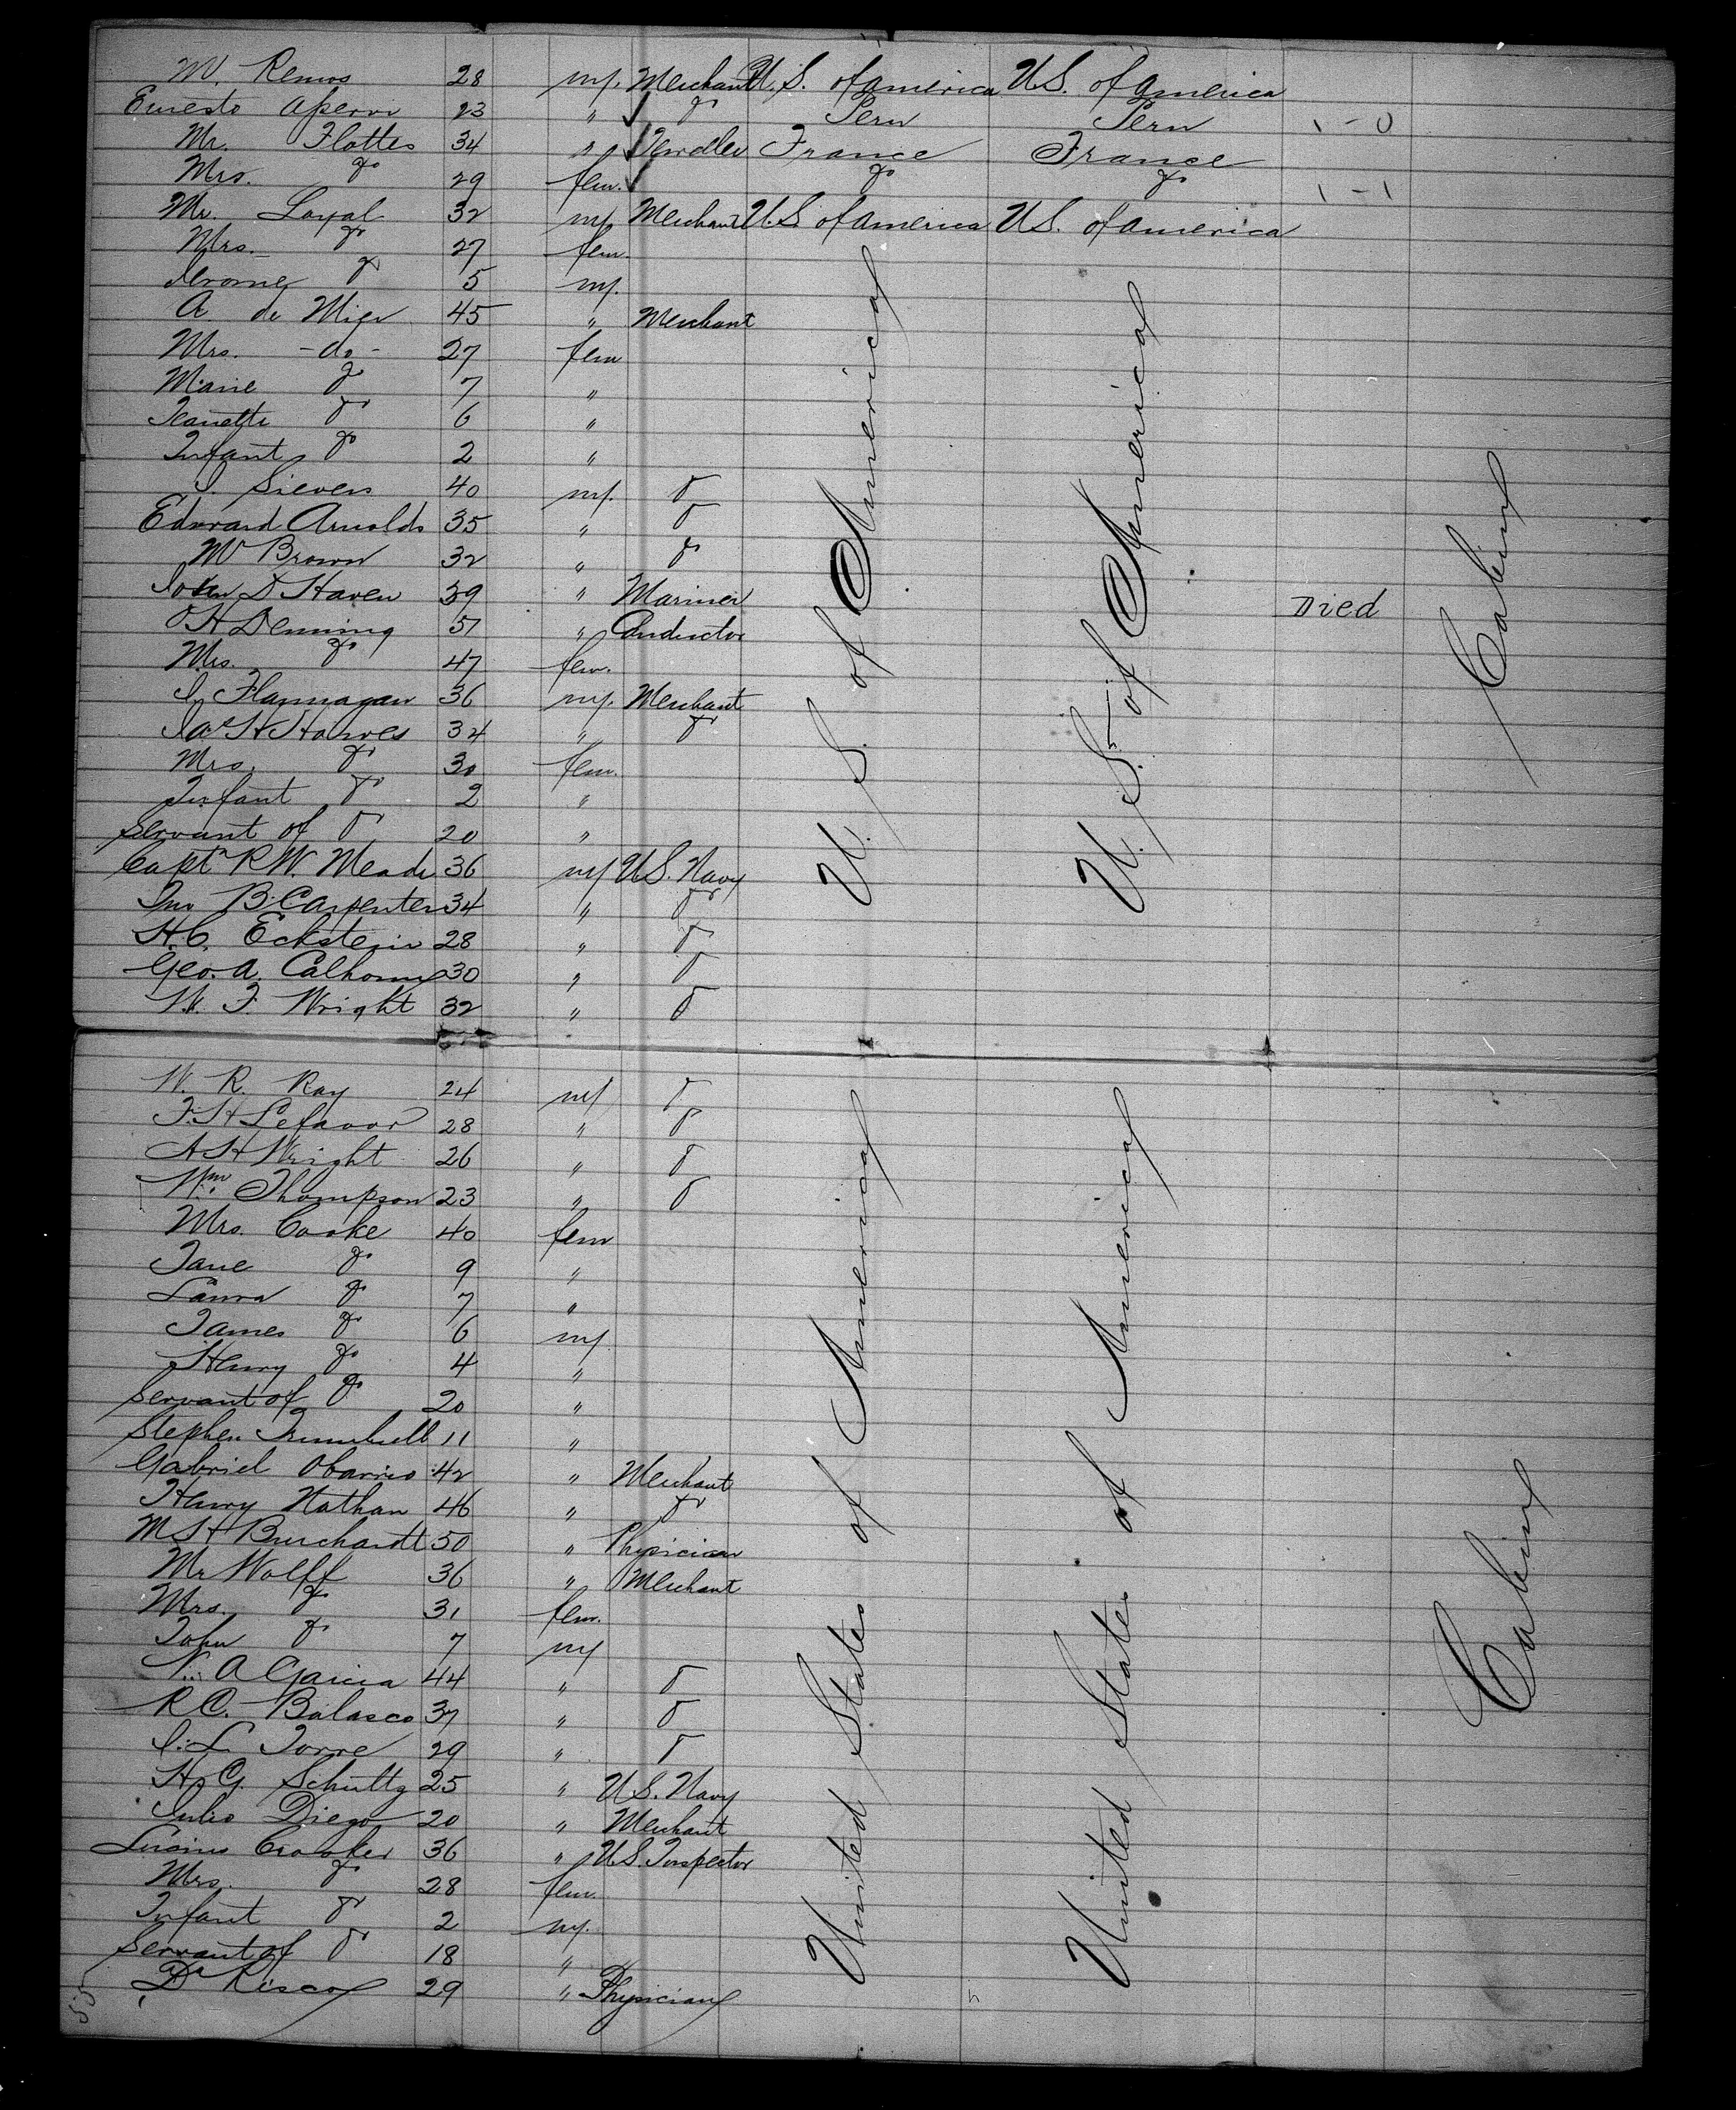 W. Remos 28 m/. Merchant U.S. of America U.S. of America
Ernesto 23 " do Peru Peru 1-0
Mr. Flottes 34 " Jeweller France France
Mrs. do 29 fem. do do 1-1
Mr. Loyal 32 m/. Merchant U.S. of America U.S. of America
Mrs. do 27 fem.
Jerome do 5 m/.
A. de Mier 45 " Merchant
Mrs. -do- 27 fem
Marie do 7 "
Jeanette do 6 "
Infant do 2 "
J. Sievers 40 m/. do
Edward Arnolds 35 " do
W Brown 32 " do
John D Haven 39 " Mariner Died
H Denning 51 " Conductor
Mrs. do 47 fem.
J. Flannagan 36 m/. Merchant
Jas H Hawes 34 " do
Mrs. do 30 fem.
Infant do 2 "
Servant of do 20 "
Capt R.W. Meade 36 m/ U.S. Navy
Jno B. Carpenter 34 " do
H.C. Eckstein 28 " do
Geo. A. Calhoun 30 " do
W. F. Wright 32 " do
U. S. of America
U. S. of America
Cabin
W. R. Ray 24 m/ do
F.H Lefavor 28 " do
A H Wright 26 " do
Wm. Thompson 23 " do
Mrs. Cooke 40 fem
Jane do 9 "
Laura do 7 "
James do 6 m/
Henry do 4 "
Servant of do 20 "
Stephen Trumbull 11 "
Gabriel Obarrio 42 " Merchant
Henry Nathan 46 " do
M H Burchardt 50 " Physician
Mr Wolff 36 " Merchant
Mrs. do 31 fem.
John do 7 m/
N. A Garcia 44 " do
R C. Balasco 37 " do
J. L Torre 29 " do
H. G. Schultz 25 " U.S. Navy
Julio Diego 20 " Merchant
Lucius Crooker 36 " U.S. Inspector
Mrs. do 28 fem.
Infant do 2 m/.
Servant of do 18 "
Dr Risco 29 " Physician
United States of America
United States of America
Cabin
55